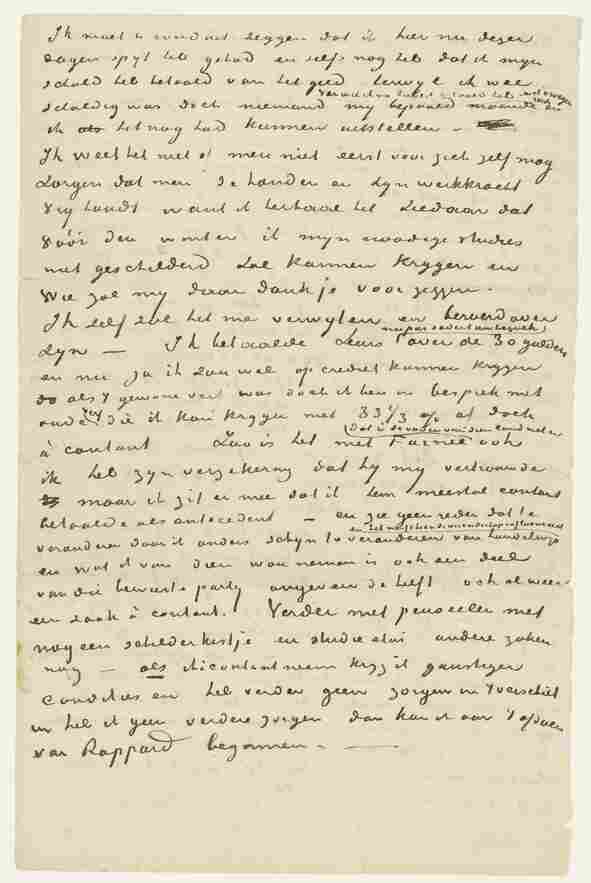 Ik moet u ronduit zeggen dat ik hier nu dezer
dagen spyt heb gehad en zelfs nog heb dat ik myn
schuld heb betaald van het geld terwyl ik wel
schuldig was doch niemand my bepaald maande
ik als het nog had kunnen uitstellen –
Ik weet het niet of men niet eerst voor zich zelf mag
zorgen dat men de handen en zyn werkkracht
vry houdt want ik herhaal het Ziedaar dat
vóór den winter ik myn noodige studies
niet geschilderd zal kunnen krygen en
wie zal my daar dank je voor zeggen.
Ik zelf zal het me verwyten en beroerd over
zyn — Ik betaalde Leurs over de 30 gulden
en nu ja ik zou wel op crediet kunnen krygen
do als 't gewone verf was doch ik ben in besprek met
oude verf die ik kan krygen met 33 1/3 % af doch
à contant Zoo is het met Furnée ook
ik heb zyn verzekering dat hy my vertrouwde
maar ik zit er mee dat ik hem meestal contant
betaalde als antecedent – en zie geen reden dat te
veranderen daar ik anders schyn te veranderen van handelwys
en wat ik van dien wou nemen is ook een deel
van die bewuste party ongeveer de helft ook al weer
een zaak à contant. Verder met penseelen met
nog een schilderkistje en studie etui andere zaken
nog — als ik contant neem kryg ik gunstiger
condities en heb verder geen zorgen in 't verschiet
en heb ik geen verdere zorgen dan kan ik aan 't afdoen
van Rappard beginnen. —